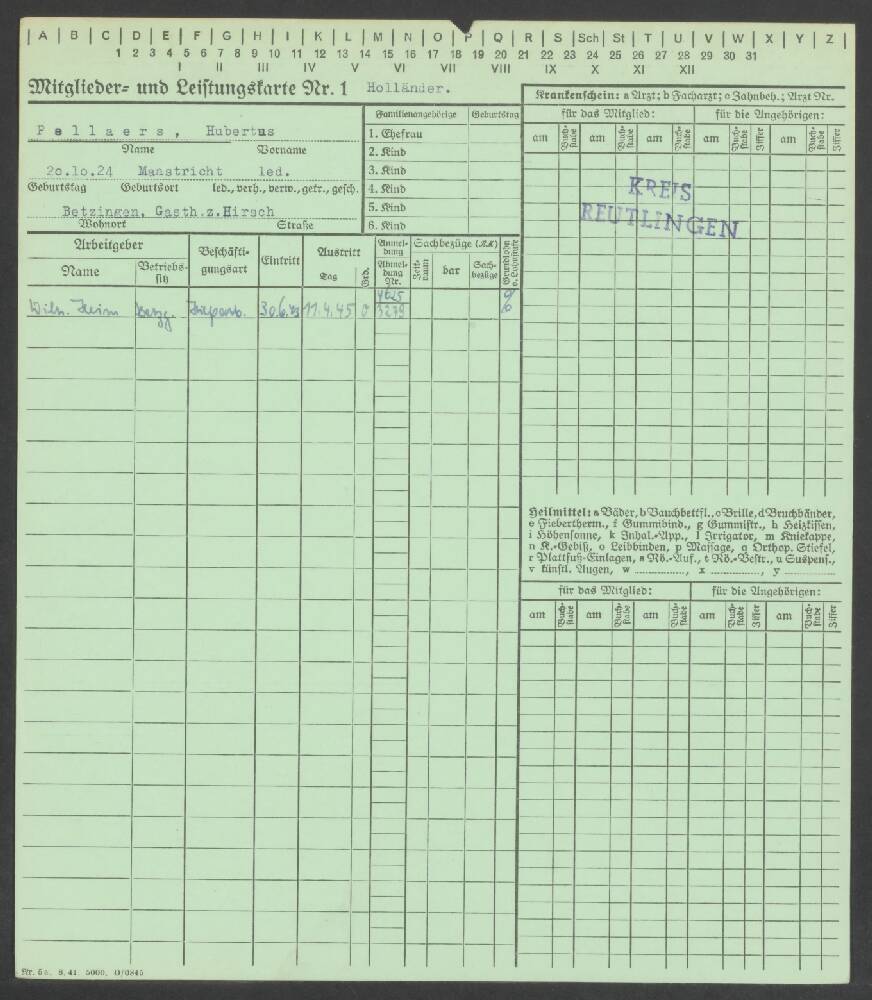 A B C D E F G H I K L M N O P Q R S Sch St T U V W X Y Z
1 2 3 4 5 6 7 8 9 10 11 12 13 14 15 16 17 18 19 20 21 22 23 24 25 26 27 28 29 30 31
I II III IV V VI VII VIII IX X XI XII
Mitglieder- und Leistungskarte Nr. 1 Holländer.
Pellaers, Hubertus
Name Vorname
20.10.24 Maastricht led.
Geburtstag Geburtsort led., verh., verw., getr., gesch.
Betzingen, Gasth.z.Hirsch
Wohnort Straße
Familienangehörige Geburtstag
1. Ehefrau
2. Kind
3. Kind
4. Kind
5. Kind
6. Kind
Arbeitgeber
Name Betriebs-sitz
Beschäfti-gungsart
Eintritt
Austritt
Tag Grd.
Anmel-dung
Abmel-dung Nr.
Sachbezüge (RK)
Zeit-raum bar Sach-bezüge
Grundlohn o. Lohnstufe
Wilh. Heim Betzg. 30.6.43 11.4.45 0 4625
3279
Krankenschein: a Arzt; b Facharzt; c Zahnbeh.; Arzt Nr.
für das Mitglied: für die Angehörigen:
am Buch-stabe am Buch-stabe am Buch-stabe am Buch-stabe Ziffer am Buch-stabe Ziffer
KREIS
REUTLINGEN
Heilmittel: a Bäder, b Bauchbettfl., c Brille, d Bruchbänder,
e Fiebertherm., f Gummibind., g Gummistr., h Heizkissen,
i Höhensonne, k Inhal.-App., l Irrigator, m Kniekappe,
n K.-Gebiß, o Leibbinden, p Massage, q Orthop. Stiefel,
r Plattfuß-Einlagen, s Rö.-Auf., t Rö.-Bestr., u Suspens.,
v künstl. Augen, w ............, x ............, y ............
für das Mitglied: für die Angehörigen:
am Buch-stabe am Buch-stabe am Buch-stabe am Buch-stabe Ziffer am Buch-stabe Ziffer
Nr. 6a. 8. 41. 5000. O/0845